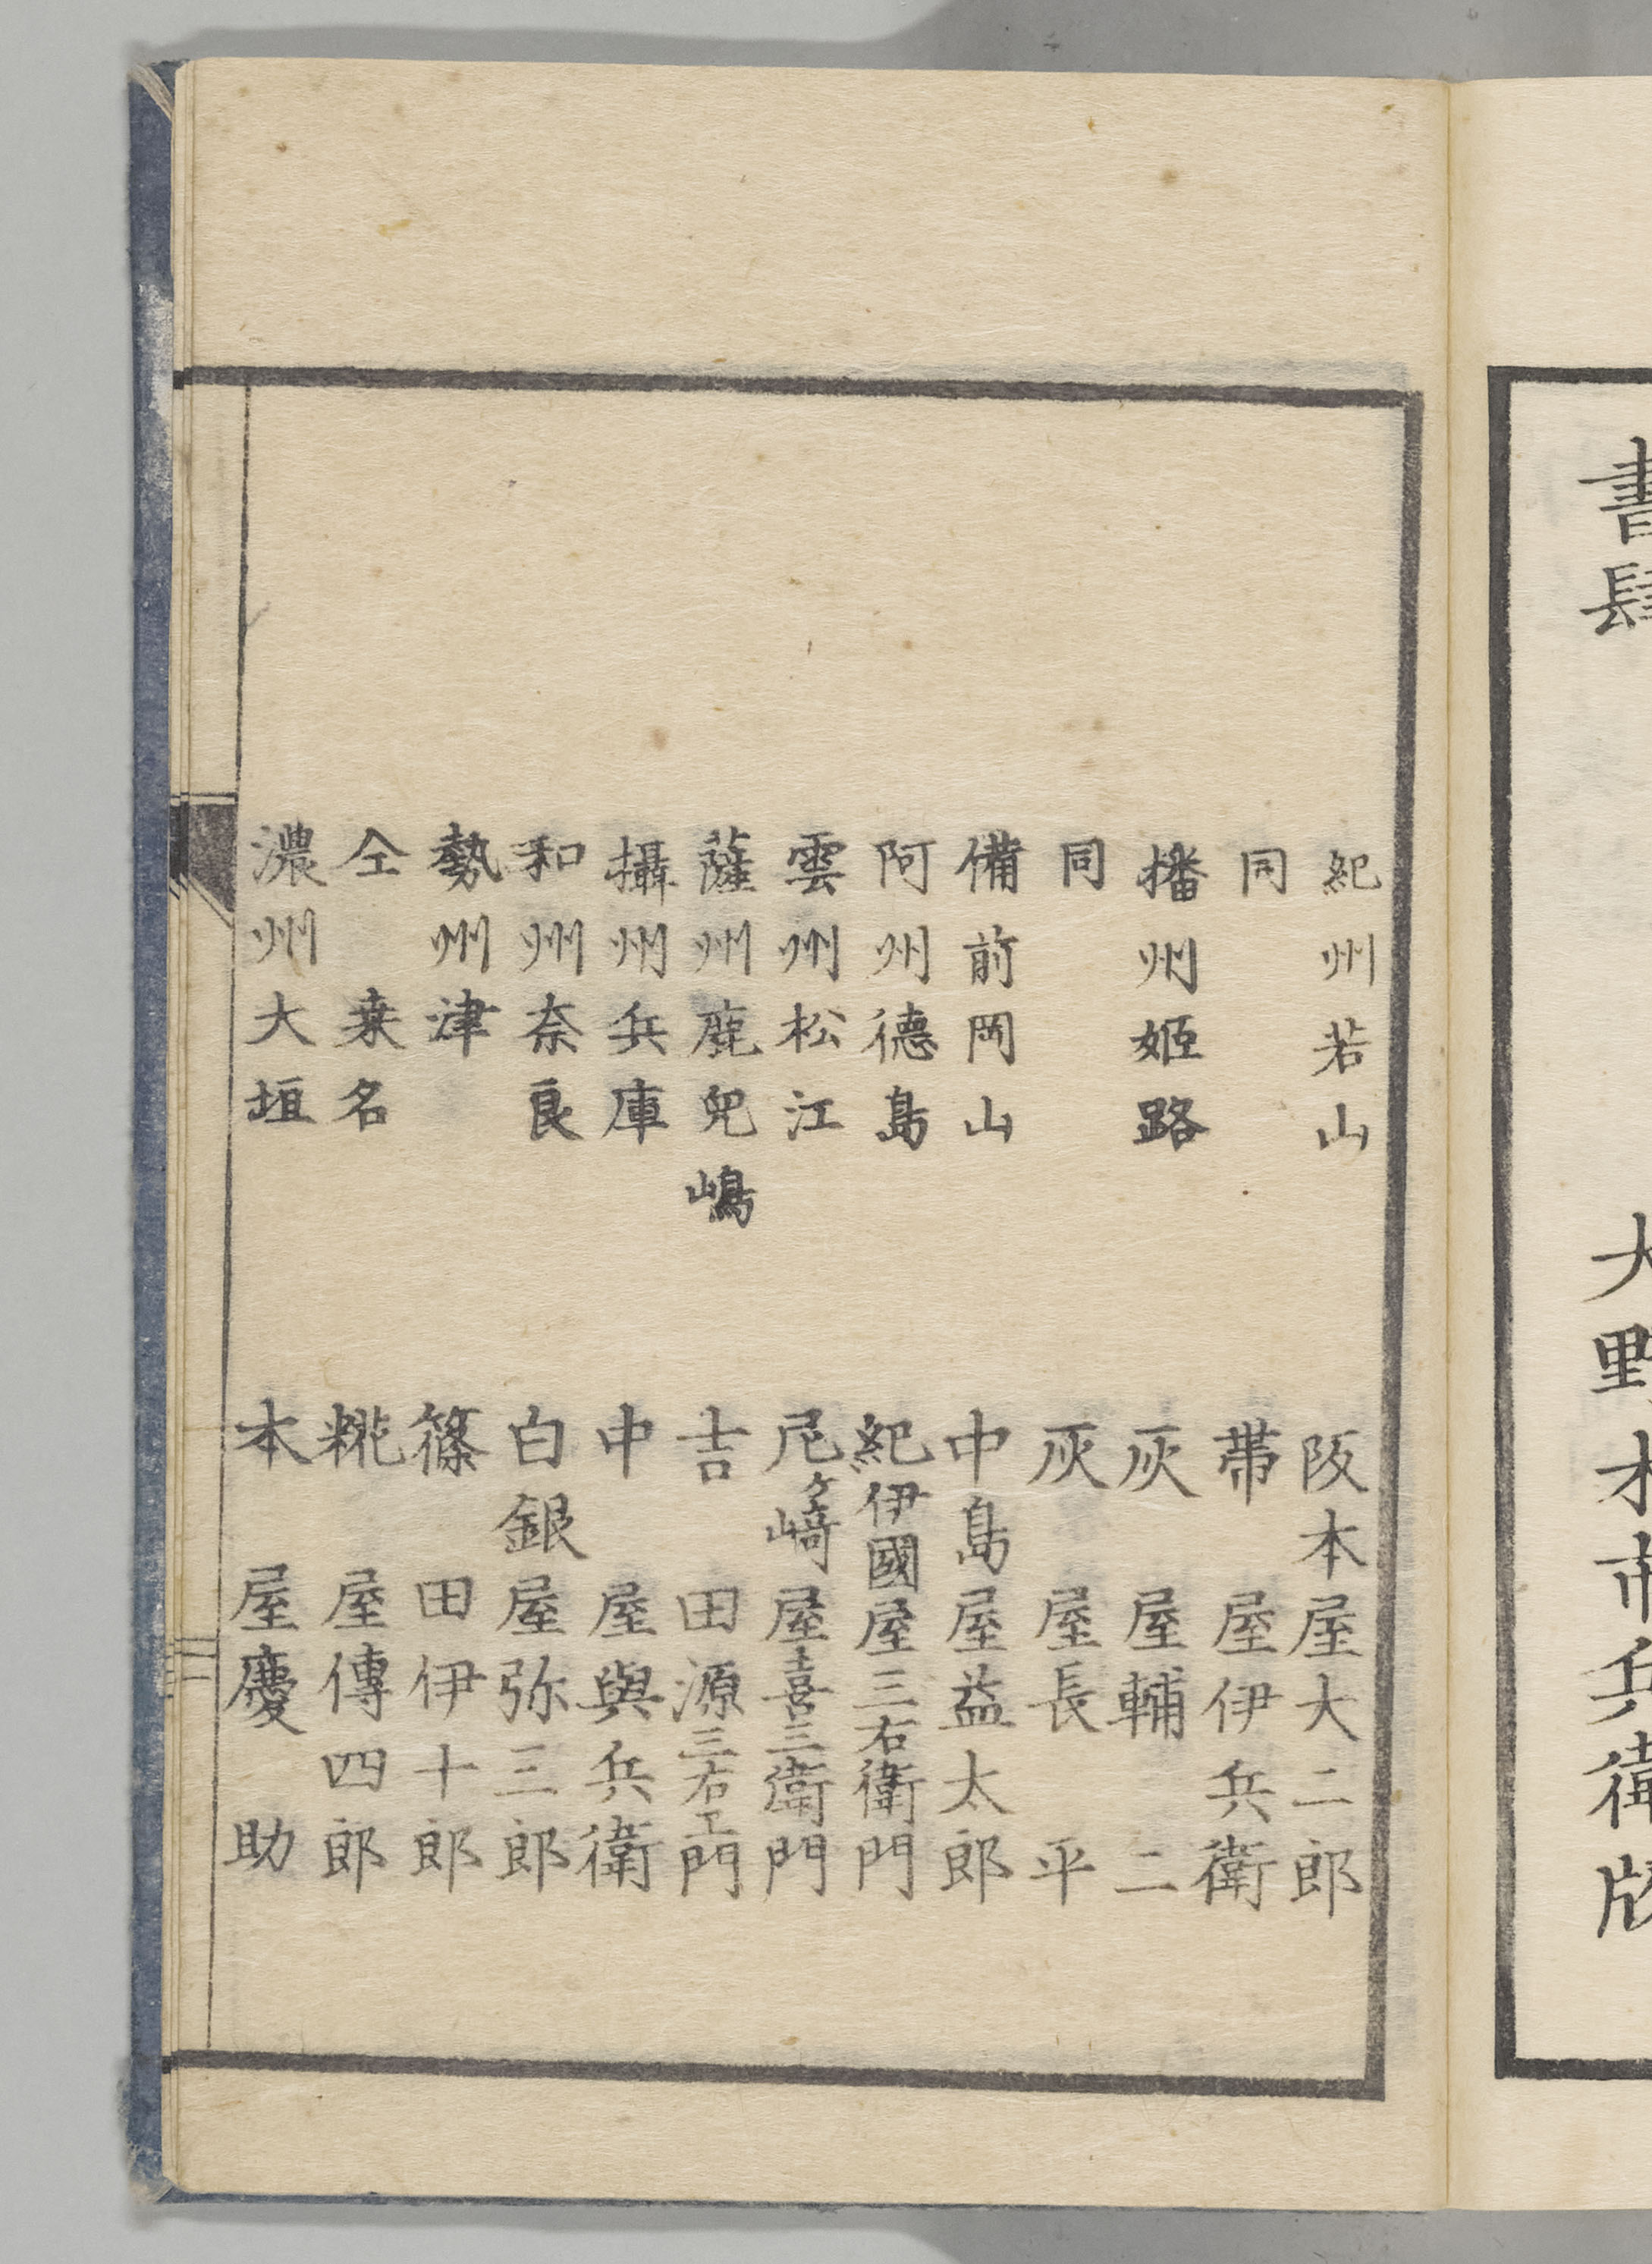 書肆 大野木市兵衛版
紀州若山 阪本屋大二郎
同 帯屋伊兵衛
播州姫路 灰屋輔二
同 灰屋長平
備前岡山 中島屋益太郎
阿州德島 紀伊國屋三右衛門
雲州松江 尼ヶ﨑屋喜三衛門
薩州鹿兒嶋 吉田源三右エ門
攝州兵庫 中屋與兵衛
和州奈良 白銀屋弥三郎
勢州津 篠田伊十郎
仝桒名 糀屋傳四郎
濃州大垣 本屋慶助